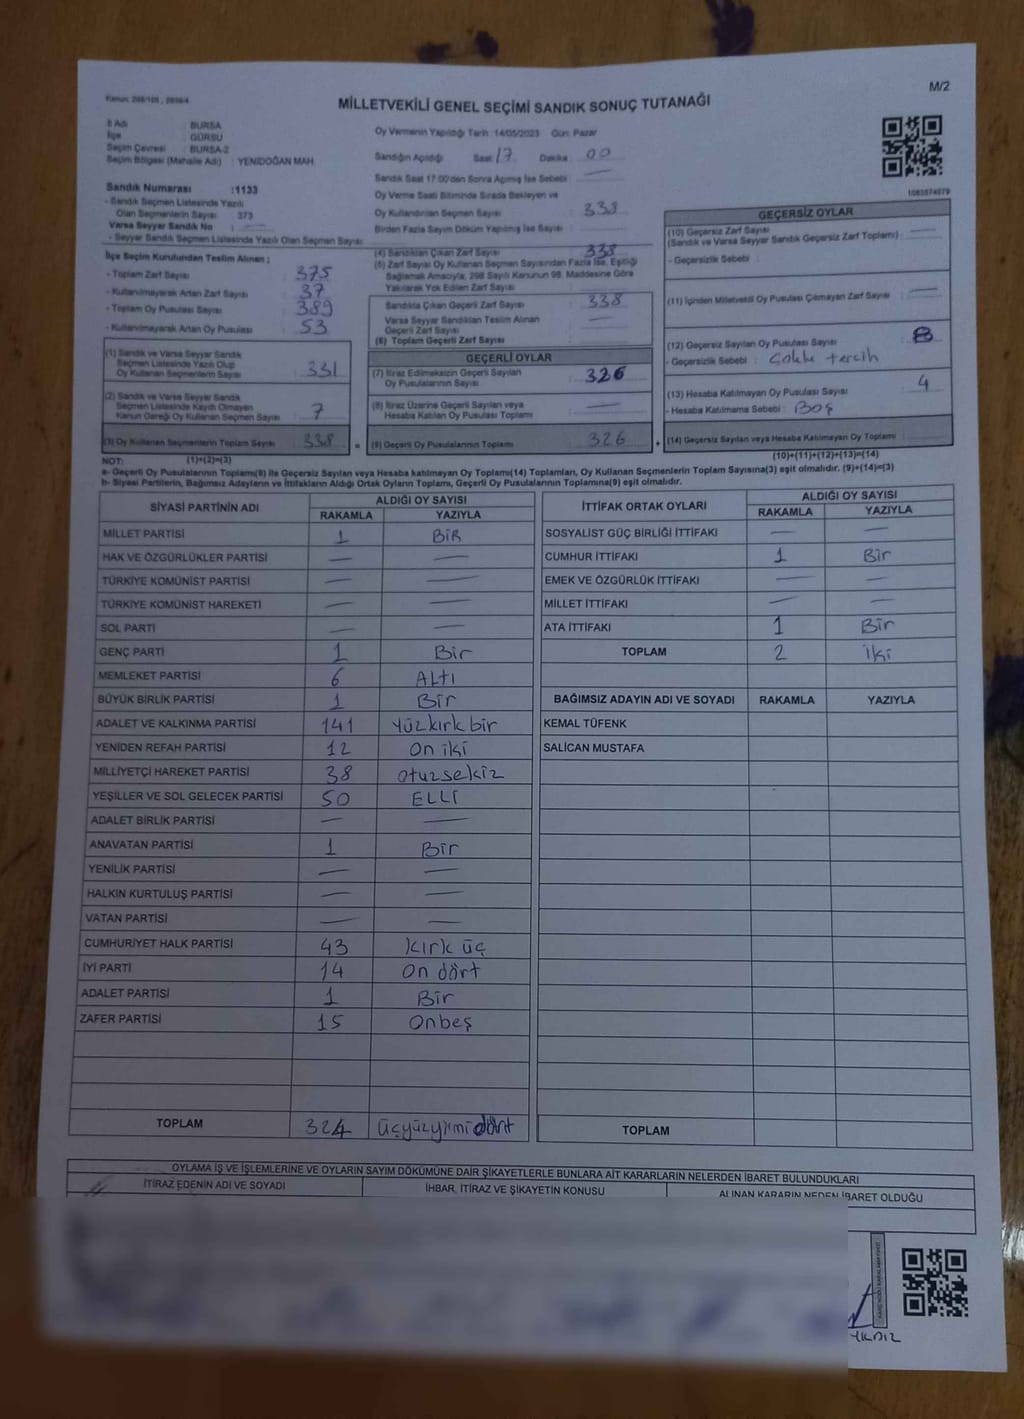 M/2
Kanun: 298/105 , 2839/4
MİLLETVEKİLİ GENEL SEÇİMİ SANDIK SONUÇ TUTANAĞI
İl Adı : BURSA
İlçe : GÜRSU
Seçim Çevresi : BURSA-2
Seçim Bölgesi (Mahalle Adı) : YENİDOĞAN MAH.
Sandık Numarası :1133
- Sandık Seçmen Listesinde Yazılı
Olan Seçmenlerin Sayısı 373
Varsa Seyyar Sandık No : —
- Seyyar Sandık Seçmen Listesinde Yazılı Olan Seçmen Sayısı
İlçe Seçim Kurulundan Teslim Alınan ;
- Toplam Zarf Sayısı : 375
- Kullanılmayarak Artan Zarf Sayısı : 37
- Toplam Oy Pusulası Sayısı : 389
- Kullanılmayarak Artan Oy Pusulası : 53
(1) Sandık ve Varsa Seyyar Sandık
Seçmen Listesinde Yazılı Olup
Oy Kullanan Seçmenlerin Sayısı : 331
(2) Sandık ve Varsa Seyyar Sandık
Seçmen Listesinde Kaydı Olmayan
Kanun Gereği Oy Kullanan Seçmen Sayısı : 7
(3) Oy Kullanan Seçmenlerin Toplam Sayısı : 338 =
Oy Vermenin Yapıldığı Tarih :14/05/2023 Gün: Pazar
Sandığın Açıldığı Saat 17 Dakika 00
Sandık Saat 17:00'den Sonra Açılmış İse Sebebi : —
Oy Verme Saati Bitiminde Sırada Bekleyen ve
Oy Kullandırılan Seçmen Sayısı : 338
Birden Fazla Sayım Döküm Yapılmış İse Sayısı :
(4) Sandıktan Çıkan Zarf Sayısı : 338
(5) Zarf Sayısı Oy Kullanan Seçmen Sayısından Fazla İse, Eşitliği
Sağlamak Amacıyla, 298 Sayılı Kanunun 98. Maddesine Göre
Yakılarak Yok Edilen Zarf Sayısı :
Sandıkta Çıkan Geçerli Zarf Sayısı : 338
Varsa Seyyar Sandıktan Teslim Alınan
Geçerli Zarf Sayısı : —
(6) Toplam Geçerli Zarf Sayısı :
GEÇERLİ OYLAR
(7) İtiraz Edilmeksizin Geçerli Sayılan
Oy Pusulalarının Sayısı : 326
(8) İtiraz Üzerine Geçerli Sayılan veya
Hesaba Katılan Oy Pusulası Toplamı : —
(9) Geçerli Oy Pusulalarının Toplamı : 326 +
1083574079
GEÇERSİZ OYLAR
(10) Geçersiz Zarf Sayısı
(Sandık ve Varsa Seyyar Sandık Geçersiz Zarf Toplamı) : —
- Geçersizlik Sebebi :
(11) İçinden Milletvekili Oy Pusulası Çıkmayan Zarf Sayısı : —
(12) Geçersiz Sayılan Oy Pusulası Sayısı : 8
- Geçersizlik Sebebi : Çoklu tercih
(13) Hesaba Katılmayan Oy Pusulası Sayısı : 4
- Hesaba Katılmama Sebebi : Boş
(14) Geçersiz Sayılan veya Hesaba Katılmayan Oy Toplamı :
(10)+(11)+(12)+(13)=(14)
NOT: (1)+(2)=(3)
a- Geçerli Oy Pusulalarının Toplamı(9) ile Geçersiz Sayılan veya Hesaba katılmayan Oy Toplamı(14) Toplamları, Oy Kullanan Seçmenlerin Toplam Sayısına(3) eşit olmalıdır. (9)+(14)=(3)
b- Siyasi Partilerin, Bağımsız Adayların ve İttifakların Aldığı Oyların Toplamı, Geçerli Oy Pusulalarının Toplamına(9) eşit olmalıdır.
SİYASİ PARTİNİN ADI ALDIĞI OY SAYISI
RAKAMLA YAZIYLA
MİLLET PARTİSİ 1 BİR
HAK VE ÖZGÜRLÜKLER PARTİSİ — —
TÜRKİYE KOMÜNİST PARTİSİ — —
TÜRKİYE KOMÜNİST HAREKETİ — —
SOL PARTİ — —
GENÇ PARTİ 1 Bir
MEMLEKET PARTİSİ 6 ALTI
BÜYÜK BİRLİK PARTİSİ 1 Bir
ADALET VE KALKINMA PARTİSİ 141 yüzkırk bir
YENİDEN REFAH PARTİSİ 12 on iki
MİLLİYETÇİ HAREKET PARTİSİ 38 otuzsekiz
YEŞİLLER VE SOL GELECEK PARTİSİ 50 ELLİ
ADALET BİRLİK PARTİSİ — —
ANAVATAN PARTİSİ 1 Bir
YENİLİK PARTİSİ — —
HALKIN KURTULUŞ PARTİSİ — —
VATAN PARTİSİ — —
CUMHURİYET HALK PARTİSİ 43 kırk üç
İYİ PARTİ 14 on dört
ADALET PARTİSİ 1 Bir
ZAFER PARTİSİ 15 Onbeş
TOPLAM 324 üçyüzyirmidört
İTTİFAK ORTAK OYLARI ALDIĞI OY SAYISI
RAKAMLA YAZIYLA
SOSYALİST GÜÇ BİRLİĞİ İTTİFAKI — —
CUMHUR İTTİFAKI 1 Bir
EMEK VE ÖZGÜRLÜK İTTİFAKI — —
MİLLET İTTİFAKI — —
ATA İTTİFAKI 1 Bir
TOPLAM 2 iki
BAĞIMSIZ ADAYIN ADI VE SOYADI RAKAMLA YAZIYLA
KEMAL TÜFENK
SALİCAN MUSTAFA
TOPLAM
OYLAMA İŞ VE İŞLEMLERİNE VE OYLARIN SAYIM DÖKÜMÜNE DAİR ŞİKAYETLERLE BUNLARA AİT KARARLARIN NELERDEN İBARET BULUNDUKLARI
İTİRAZ EDENİN ADI VE SOYADI İHBAR, İTİRAZ VE ŞİKAYETİN KONUSU ALINAN KARARIN NEDEN İBARET OLDUĞU
YILDIZ